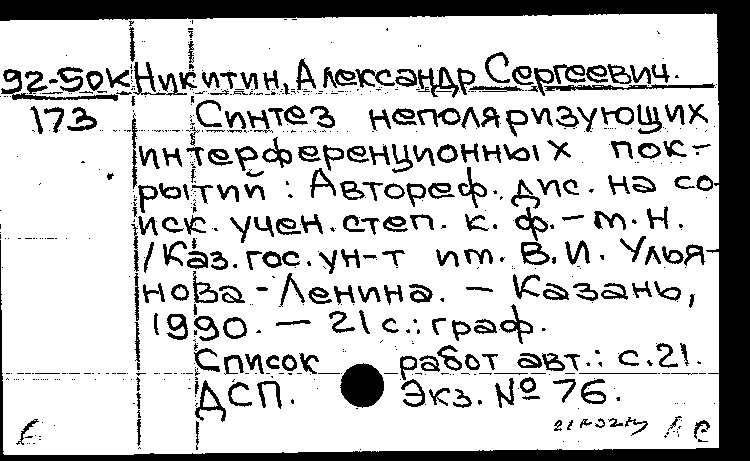 92-50к Никитин, Александр Сергеевич.
173 Синтез неполяризующих
интерференционных пок-
рытий : Автореф. дис. на со-
иск. учен. степ. к. ф.-м. н.
/Каз. гос. ун-т им. В.И. Улья-
нова-Ленина. — Казань,
1990. — 21 с.: граф.
Список работ авт.: с.21.
ДСП. Экз. № 76.